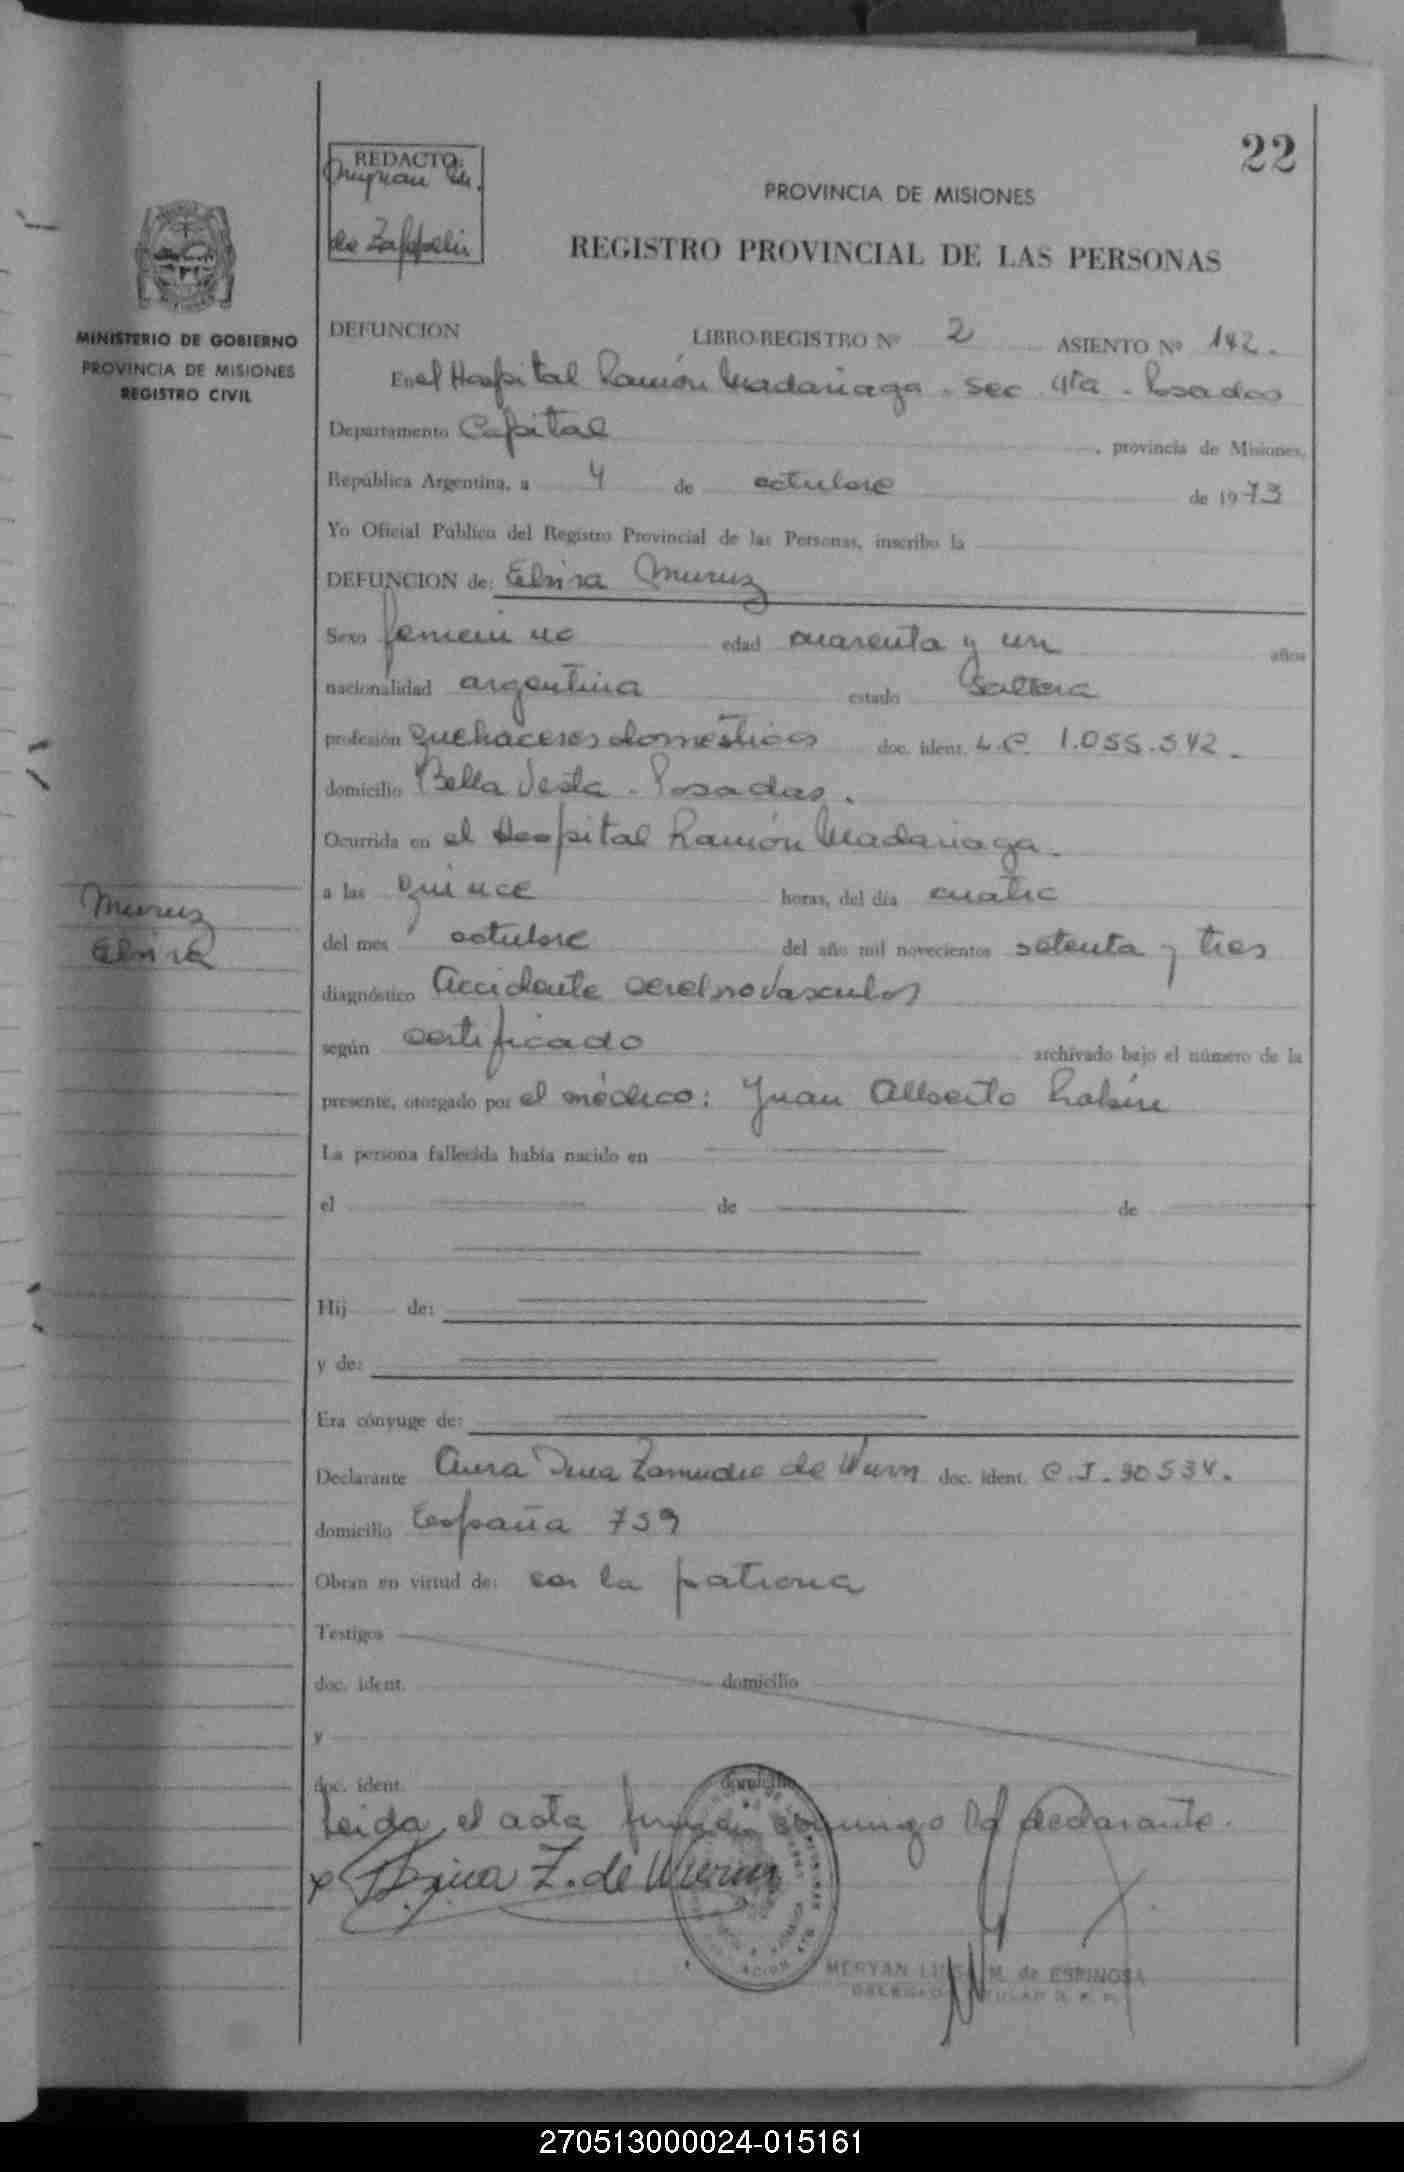 22
REDACTO:
de Zappelin
PROVINCIA DE MISIONES
REGISTRO PROVINCIAL DE LAS PERSONAS
MINISTERIO DE GOBIERNO
PROVINCIA DE MISIONES
REGISTRO CIVIL
DEFUNCION LIBRO-REGISTRO Nº 2 ASIENTO Nº 142.
En el Hospital Ramón Madariaga - Sec 4ta - Posadas
Departamento Capital, provincia de Misiones,
República Argentina, a 4 de octubre de 1973
Yo Oficial Público del Registro Provincial de las Personas, inscribo la
DEFUNCION de: Elvira Muruz
Sexo femenino edad cuarenta y un años
nacionalidad argentina estado soltera
profesión quehaceres domésticos doc. ident. L.C. 1.055.542.
domicilio Bella Vista - Posadas.
Ocurrida en el Hospital Ramón Madariaga.
a las quince horas, del día cuatro
Muruz
Elvira
del mes octubre del año mil novecientos setenta y tres
diagnóstico Accidente cerebrovascular
según certificado archivado bajo el número de la
presente, otorgado por el médico: Juan Alberto
La persona fallecida había nacido en
el de de
Hij de:
y de:
Era cónyuge de:
Declarante Zamudio de Wurm doc. ident. C.I. 90534.
domicilio España 759
Obran en virtud de: ser la patrona
Testigos
doc. ident. domicilio
y
doc. ident. domicilio
Leida el acta firman conmigo la declarante.
x Z. de Wurm
MERYAN M. de ESPINOSA
DELEGADA TITULAR R. P. P.
270513000024-015161